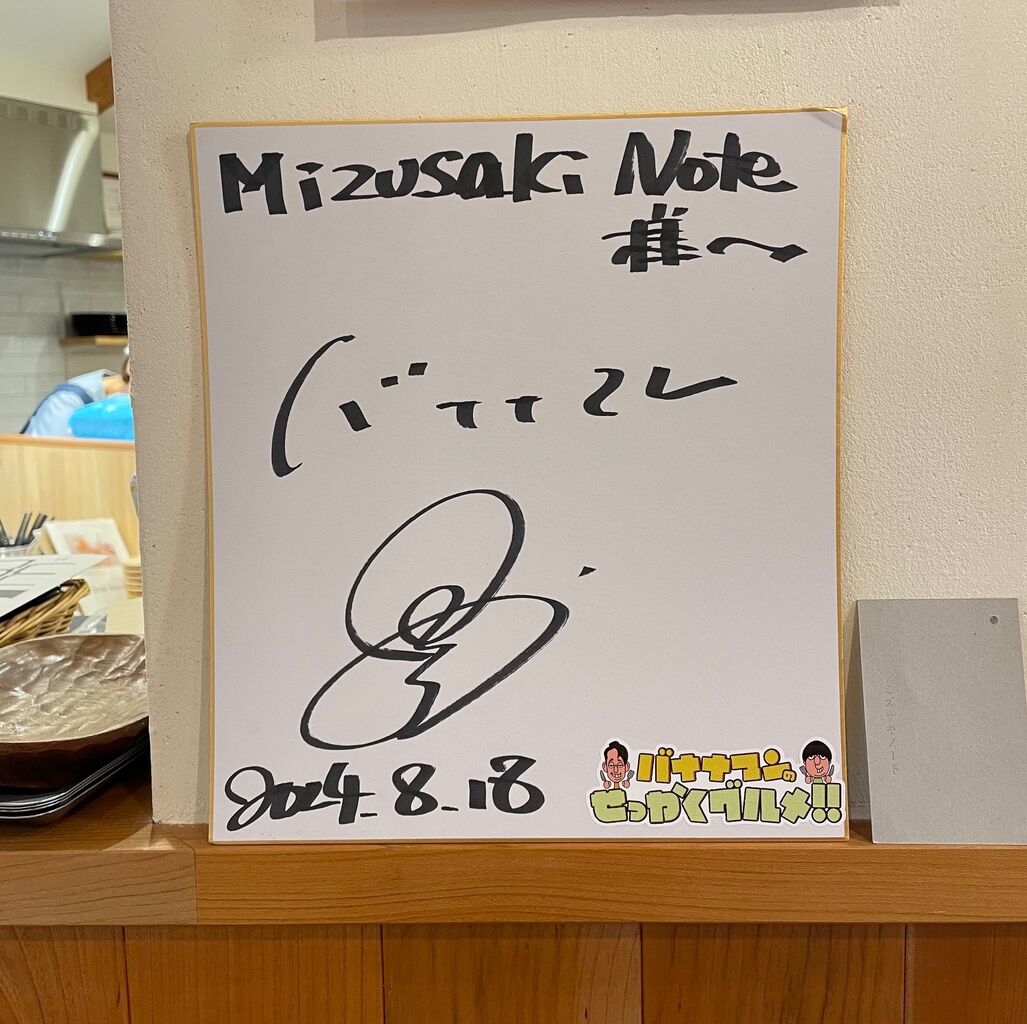 Mizusaki Note
様へ
バナナマン
2024.8.18
バナナマンの
せっかくグルメ!!
ミズサキノート